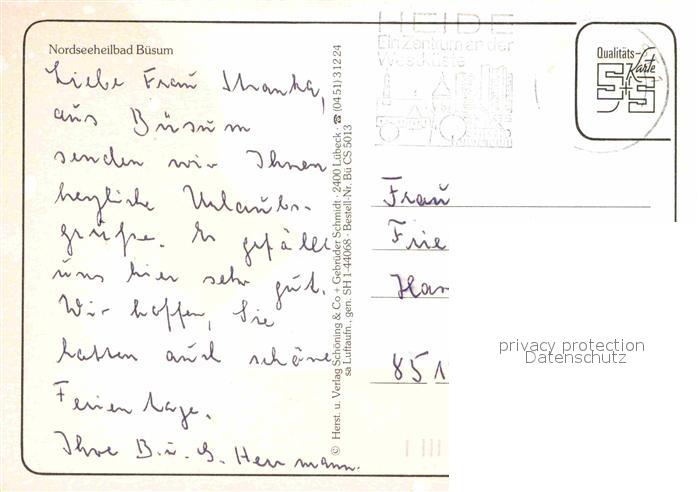 Nordseeheilbad Büsum
Liebe Frau
aus Büsum
senden wir Ihnen
herzliche Urlaubs-
grüße. Es gefällt
uns hier sehr gut.
Wir hoffen, Sie
hatten auch schöne
Ferientage.
Ihre B. u. G. Herrmann.
© Herst. u. Verlag Schöning & Co + Gebrüder Schmidt · 2400 Lübeck · ☎ (04 51) 3 12 24
sa Luftaufn., gen. SH 1-44068 · Bestell-Nr. Bü CS 5013
HEIDE
Ein Zentrum an der
Westküste
Qualitäts-
Karte
S+S
Frau
Frie
Han
851
privacy protection
Datenschutz